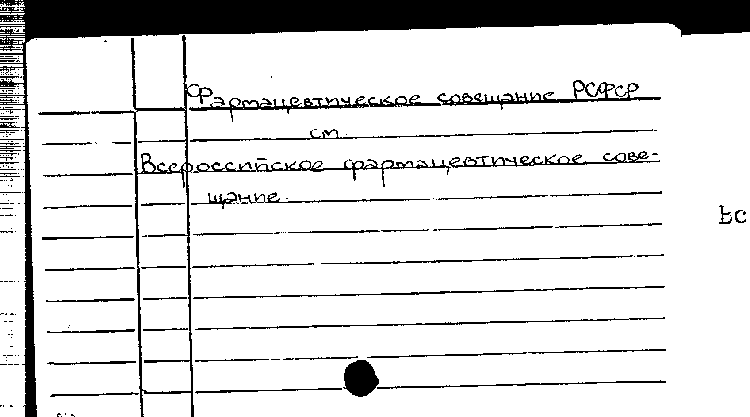 Фармацевтическое совещание РСФСР
см.
Всероссийское фармацевтическое сове-
щание.